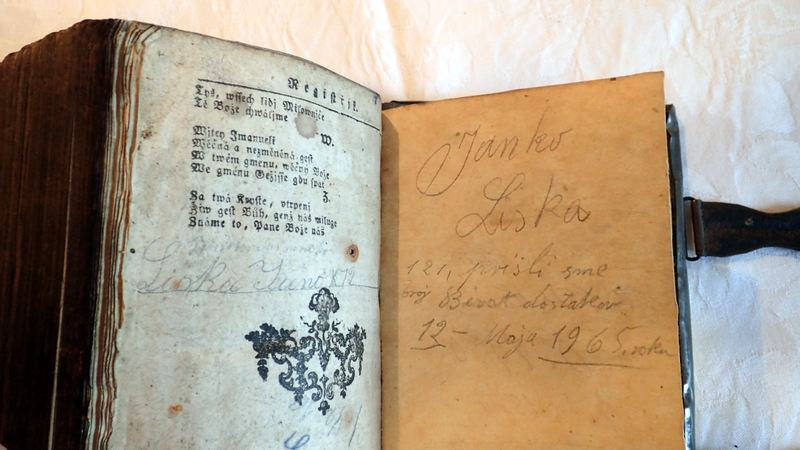 Registřjk.
Tyś, wssech lidj Milownjče
Tě Bože chwáljme
W.
Wjtey Jmanueli
Wěčná a nezměněná gest
W twém gménu, wěčný Bože
We gménu Gežjsse gdu spat
Z.
Za twá Kryste, utrpenj
Žiw gest Bůh, genž nás miluge
Známe to, Pane Bože náš
Liska
Janko
Liska
121, prišli sme
dostakov
12 - Maja 1965. roku